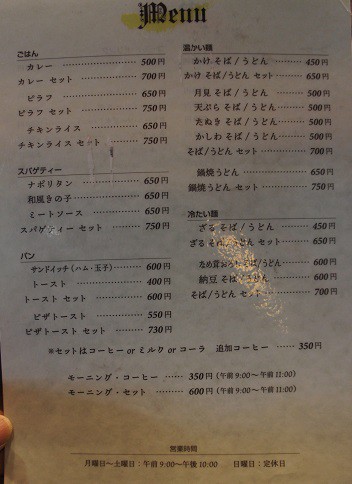 Menu
ごはん
カレー ………… 500円
カレー セット ………… 700円
ピラフ ………… 650円
ピラフ セット ………… 750円
チキンライス ………… 650円
チキンライス セット ………… 750円
スパゲティー
ナポリタン ………… 650円
和風きの子 ………… 650円
ミートソース ………… 650円
スパゲティー セット ………… 750円
パン
サンドイッチ(ハム・玉子) ………… 600円
トースト ………… 400円
トースト セット ………… 600円
ピザトースト ………… 550円
ピザトースト セット ………… 730円
温かい麺
かけ そば/うどん ………… 450円
かけ そば/うどん セット ………… 650円
月見 そば/うどん ………… 500円
天ぷら そば/うどん ………… 500円
たぬき そば/うどん ………… 500円
かしわ そば/うどん ………… 500円
そば/うどん セット ………… 700円
鍋焼うどん ………… 650円
鍋焼うどん セット ………… 750円
冷たい麺
ざる そば/うどん ………… 450円
ざる そば/うどん セット ………… 650円
なめ茸おろしそば/うどん ………… 600円
納豆 そば/うどん ………… 600円
そば/うどん セット ………… 700円
※セットはコーヒー or ミルク or コーラ 追加コーヒー ……… 350円
モーニング・コーヒー ……… 350円 (午前9:00〜午前11:00)
モーニング・セット ……… 600円 (午前9:00〜午前11:00)
営業時間
月曜日〜土曜日:午前9:00〜午後10:00 日曜日:定休日